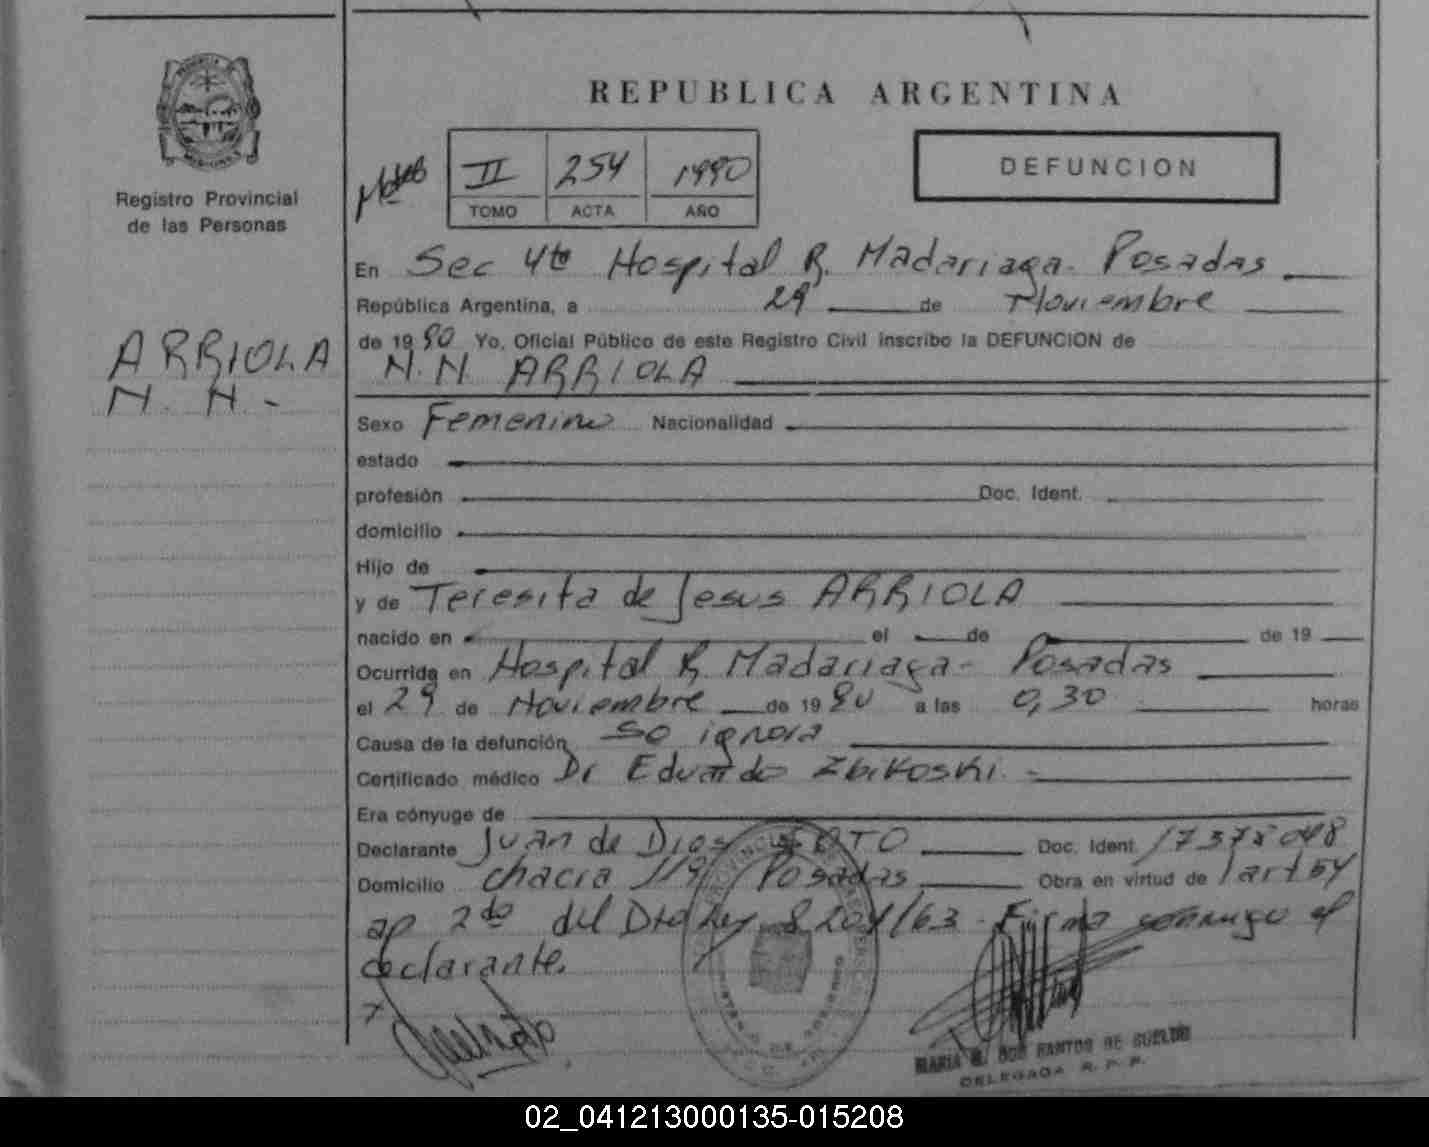 REPUBLICA ARGENTINA
II 254 1990
TOMO ACTA AÑO
DEFUNCION
Registro Provincial
de las Personas
ARRIOLA
N. N. -
En Sec 4ta Hospital R. Madariaga - Posadas
República Argentina, a 29 de Noviembre
de 1990 Yo, Oficial Público de este Registro Civil inscribo la DEFUNCION de
N. N. ARRIOLA
Sexo Femenino Nacionalidad
estado
profesión Doc. Ident.
domicilio
Hijo de
y de Teresita de Jesus ARRIOLA
nacido en el de de 19
Ocurrida en Hospital R. Madariaga - Posadas
el 29 de Noviembre de 1990 a las 0,30 horas
Causa de la defunción se ignora
Certificado médico Dr Eduardo Zbikoski. -
Era cónyuge de
Declarante Juan de Dios Doc. Ident.
Domicilio chacra 119 Posadas Obra en virtud de art 54
ap 2do del Dto Ley 8204/63 - Firma conmigo el
declarante.
MARIA DOS SANTOS DE SUELDO
DELEGADA R. P. P.
02_041213000135-015208